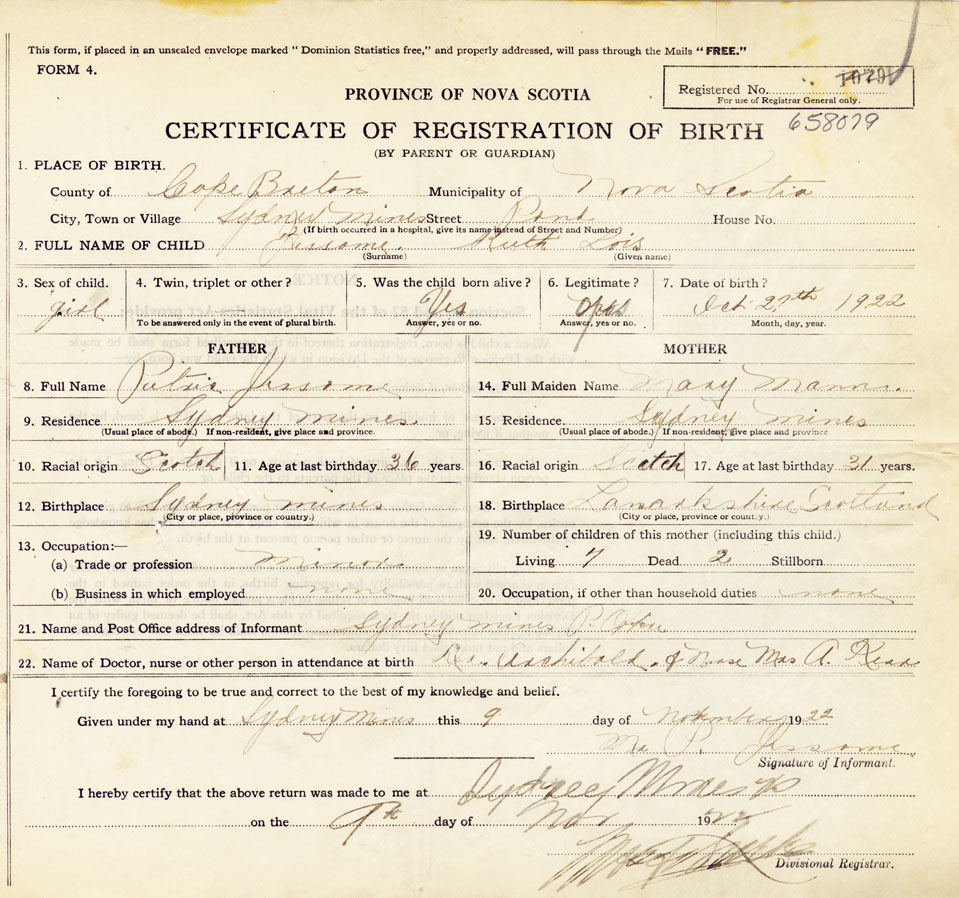 This form, if placed in an unsealed envelope marked “ Dominion Statistics free,” and properly addressed, will pass through the Mails “ FREE.”
FORM 4.
1079
Registered No.
For use of Registrar General only.
PROVINCE OF NOVA SCOTIA
658079
CERTIFICATE OF REGISTRATION OF BIRTH
(BY PARENT OR GUARDIAN)
1. PLACE OF BIRTH.
County of Cape Breton Municipality of Nova Scotia
City, Town or Village Sydney mines Street Pond House No.
(If birth occurred in a hospital, give its name instead of Street and Number)
2. FULL NAME OF CHILD Jessome. Ruth Lois
(Surname) (Given name)
3. Sex of child. 4. Twin, triplet or other? 5. Was the child born alive? 6. Legitimate? 7. Date of birth?
girl Yes yes Oct 27th 1922
To be answered only in the event of plural birth. Answer, yes or no. Answer, yes or no. Month, day, year.
FATHER MOTHER
8. Full Name Jessome 14. Full Maiden Name Mary Mann
9. Residence Sydney mines. 15. Residence. Sydney mines
(Usual place of abode.) If non-resident, give place and province. (Usual place of abode.) If non-resident, give place and province
10. Racial origin Scotch 11. Age at last birthday 36 years. 16. Racial origin Scotch 17. Age at last birthday 31 years.
12. Birthplace Sydney mines 18. Birthplace Lanarkshire Scotland
(City or place, province or country.) (City or place, province or country.)
13. Occupation:— 19. Number of children of this mother (including this child.)
(a) Trade or profession Living 7 Dead 2 Stillborn
(b) Business in which employed none 20. Occupation, if other than household duties none
21. Name and Post Office address of Informant Sydney mines P.
22. Name of Doctor, nurse or other person in attendance at birth Dr. Archibald. & Nurse Mrs A. Read
I certify the foregoing to be true and correct to the best of my knowledge and belief.
Given under my hand at Sydney Mines this 9 day of November 1922
P. Jessome
Signature of Informant.
I hereby certify that the above return was made to me at Sydney Mines
on the 9th day of Nov 1922
Divisional Registrar.